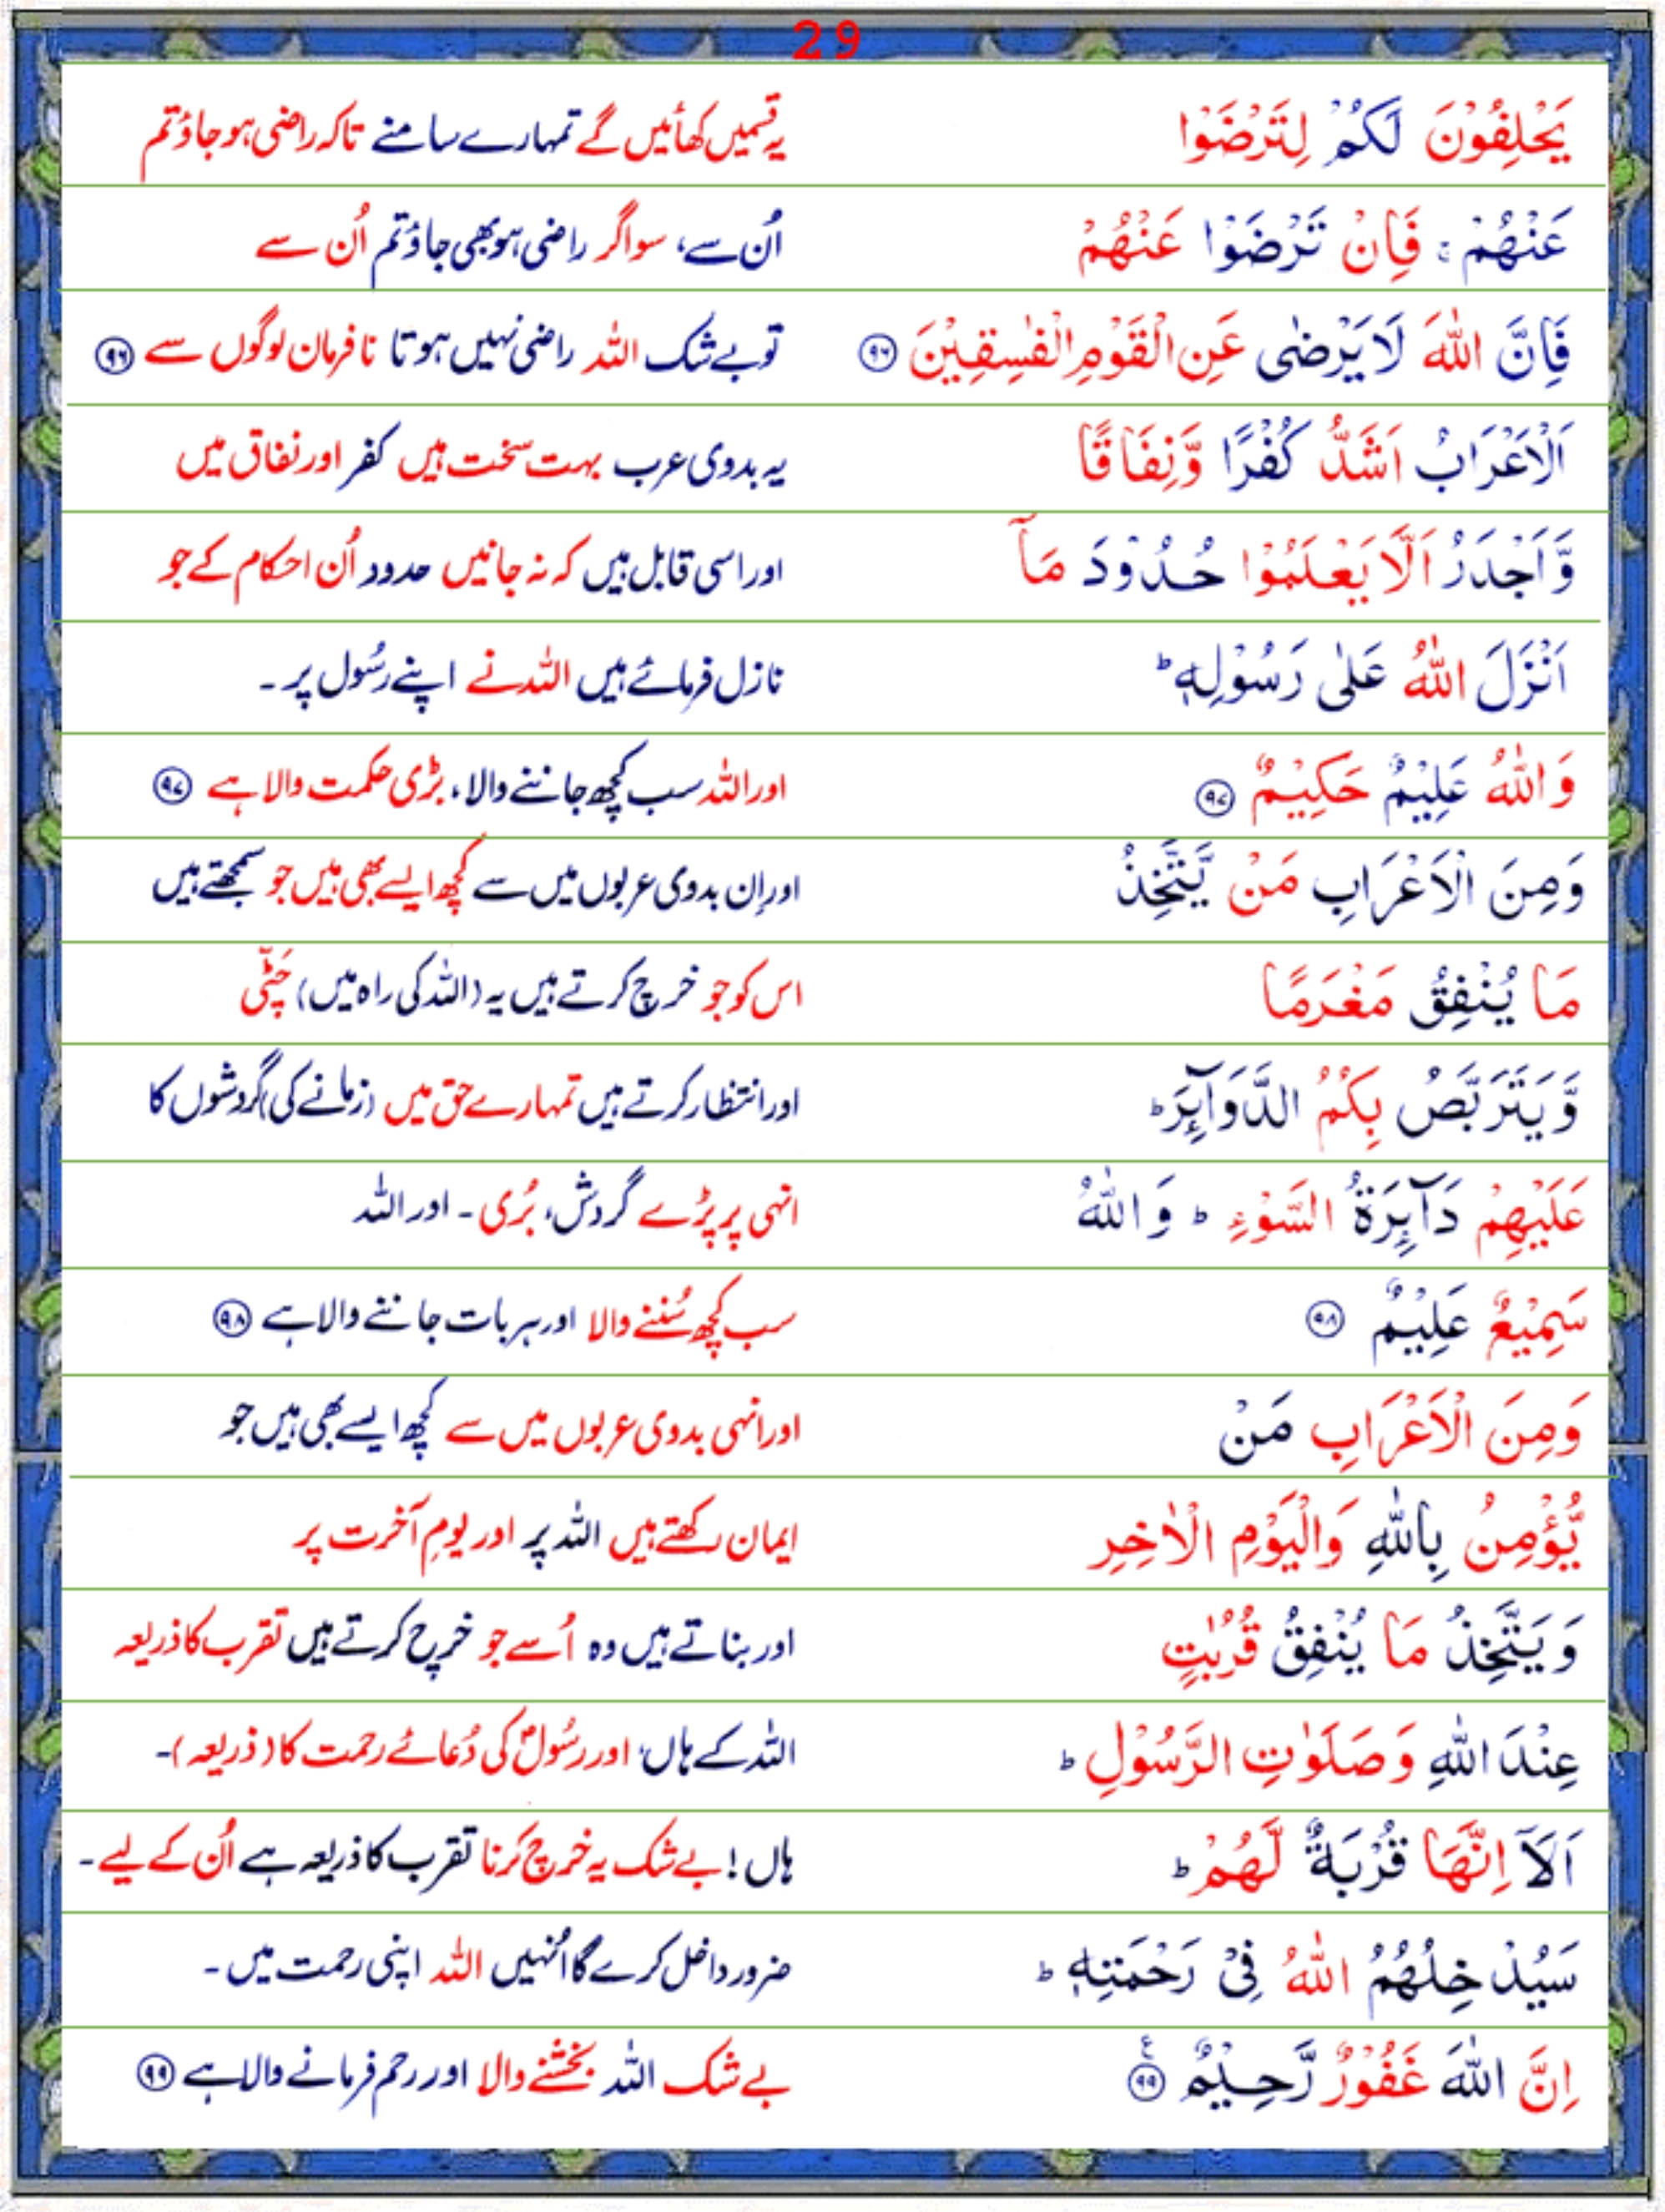 29
یَحْلِفُوْنَ لَكُمْ لِتَرْضَوْا یہ قسمیں کھائیں گے تمہارے سامنے تاکہ راضی ہو جاؤ تم
عَنْهُمْ ۚ فَاِنْ تَرْضَوْا عَنْهُمْ اُن سے، سو اگر راضی ہو بھی جاؤ تم اُن سے
فَاِنَّ اللّٰهَ لَا یَرْضٰی عَنِ الْقَوْمِ الْفٰسِقِیْنَ ۹۶ تو بے شک اللہ راضی نہیں ہوتا نافرمان لوگوں سے ۹۶
اَلْاَعْرَابُ اَشَدُّ كُفْرًا وَّنِفَاقًا یہ بدوی عرب بہت سخت ہیں کفر اور نفاق میں
وَّاَجْدَرُ اَلَّا یَعْلَمُوْا حُدُوْدَ مَاۤ اور اسی قابل ہیں کہ نہ جانیں حدود اُن احکام کے جو
اَنْزَلَ اللّٰهُ عَلٰی رَسُوْلِهٖ ؕ نازل فرمائے ہیں اللہ نے اپنے رسُول پر ۔
وَاللّٰهُ عَلِیْمٌ حَكِیْمٌ ۹۷ اور اللہ سب کچھ جاننے والا، بڑی حکمت والا ہے ۹۷
وَمِنَ الْاَعْرَابِ مَنْ یَّتَّخِذُ اور اِن بدوی عربوں میں سے کچھ ایسے بھی ہیں جو سمجھتے ہیں
مَا یُنْفِقُ مَغْرَمًا اس کو جو خرچ کرتے ہیں یہ (اللہ کی راہ میں) چَٹّی
وَّیَتَرَبَّصُ بِكُمُ الدَّوَآىِٕرَ ؕ اور انتظار کرتے ہیں تمہارے حق میں (زمانے کی) گردشوں کا
عَلَیْهِمْ دَآىِٕرَةُ السَّوْءِ ؕ وَاللّٰهُ انہی پر پڑے گردش، بُری ۔ اور اللہ
سَمِیْعٌ عَلِیْمٌ ۹۸ سب کچھ سُننے والا اور ہر بات جاننے والا ہے ۹۸
وَمِنَ الْاَعْرَابِ مَنْ اور انہی بدوی عربوں میں سے کچھ ایسے بھی ہیں جو
یُّؤْمِنُ بِاللّٰهِ وَالْیَوْمِ الْاٰخِرِ ایمان رکھتے ہیں اللہ پر اور یومِ آخرت پر
وَیَتَّخِذُ مَا یُنْفِقُ قُرُبٰتٍ اور بناتے ہیں وہ اُسے جو خرچ کرتے ہیں تقرب کا ذریعہ
عِنْدَ اللّٰهِ وَصَلَوٰتِ الرَّسُوْلِ ؕ اللہ کے ہاں، اور رسُولؐ کی دُعائے رحمت کا (ذریعہ)۔
اَلَاۤ اِنَّهَا قُرْبَةٌ لَّهُمْ ؕ ہاں! بے شک یہ خرچ کرنا تقرب کا ذریعہ ہے اُن کے لیے ۔
سَیُدْخِلُهُمُ اللّٰهُ فِیْ رَحْمَتِهٖ ؕ ضرور داخل کرے گا اُنہیں اللہ اپنی رحمت میں ۔
اِنَّ اللّٰهَ غَفُوْرٌ رَّحِیْمٌ ۹۹ ع بے شک اللہ بخشنے والا اور رحم فرمانے والا ہے ۹۹